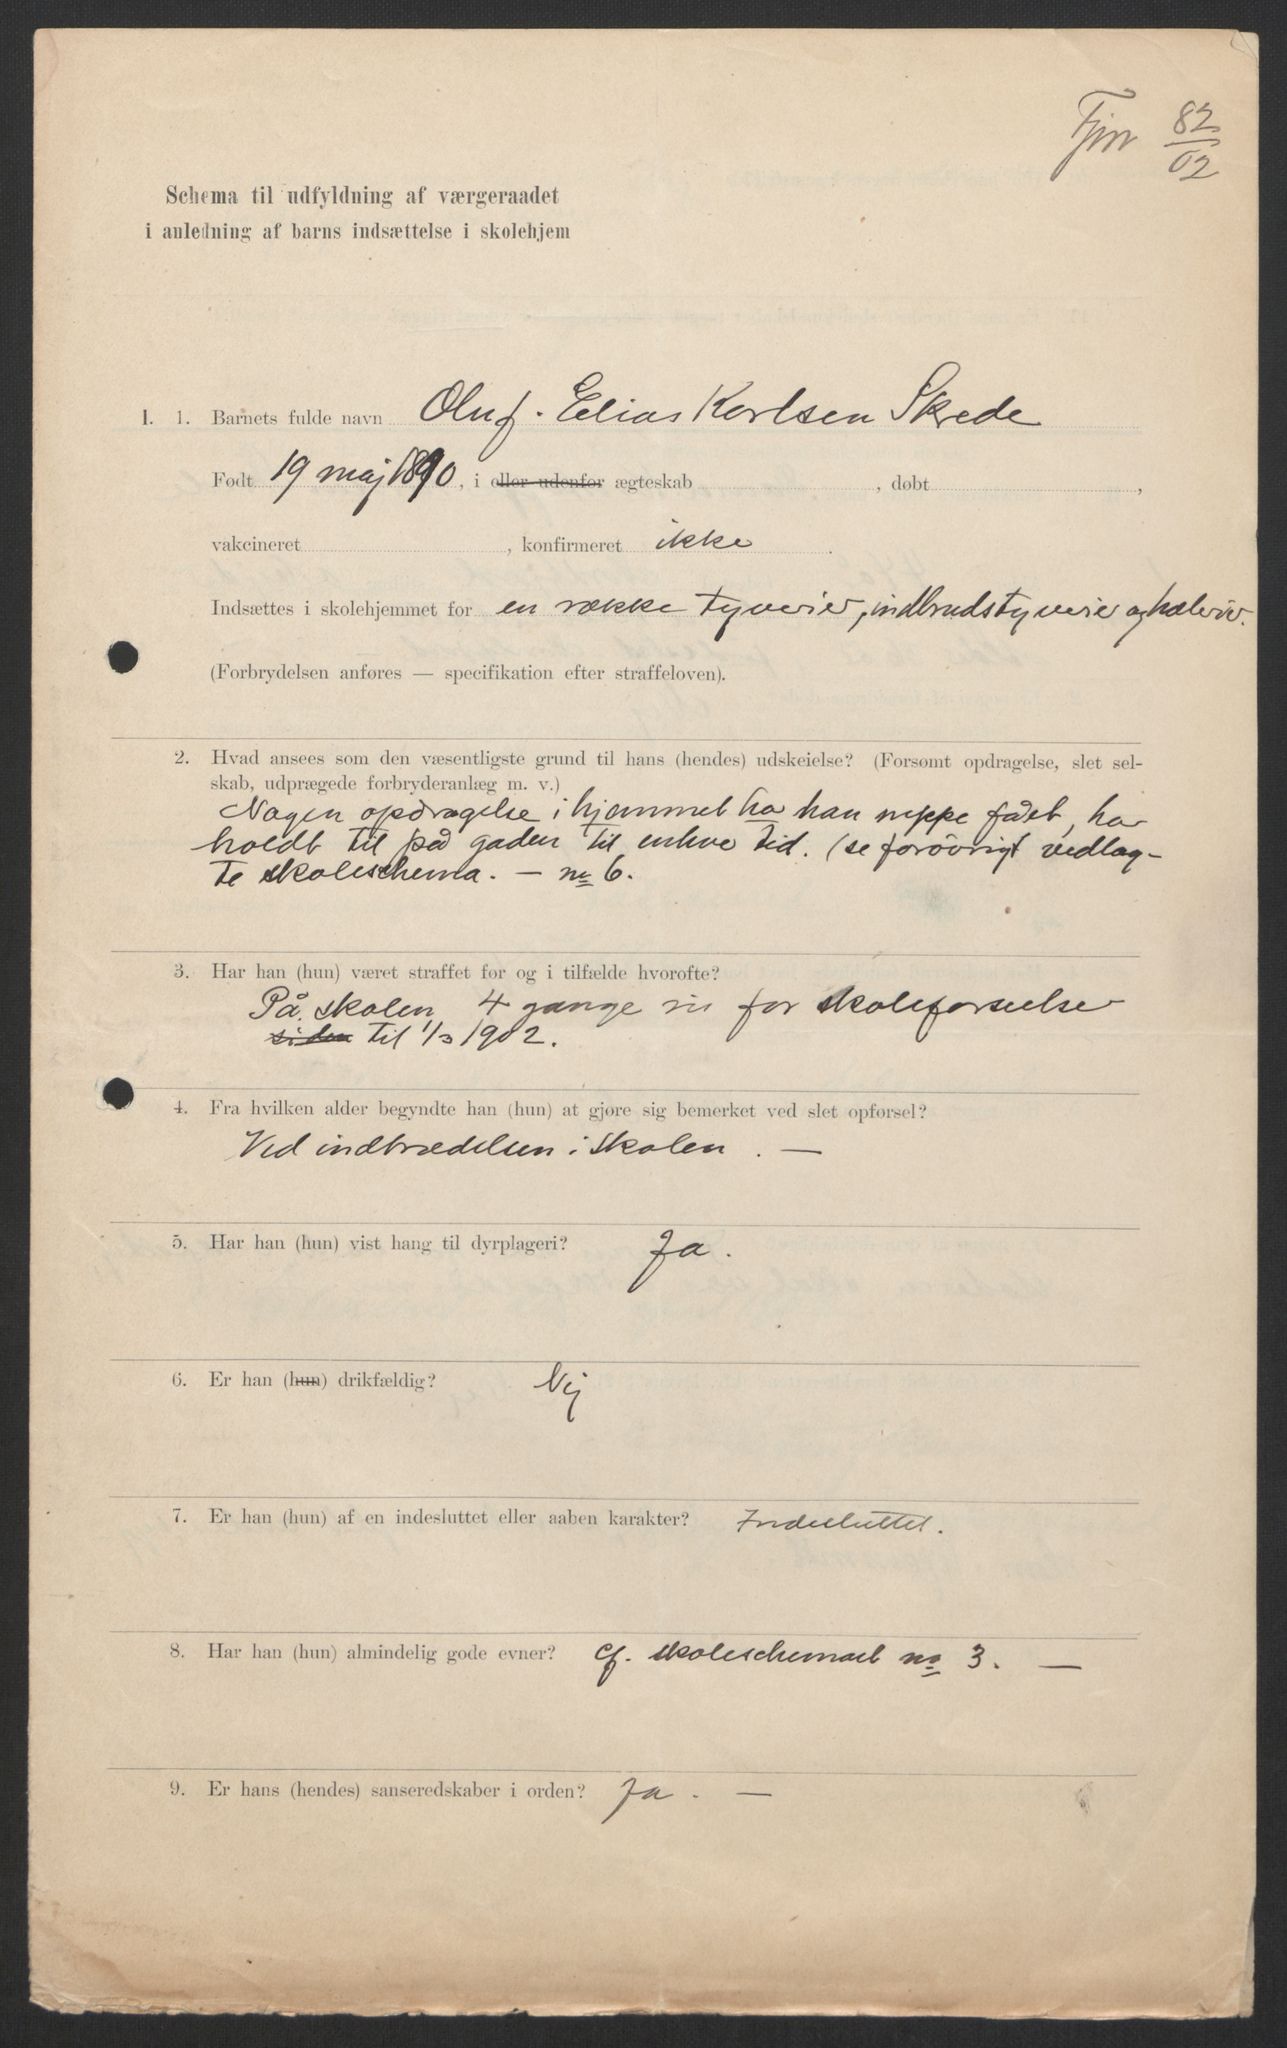 Fjnr 82/02
Schema til udfyldning af værgeraadet
i anledning af barns indsættelse i skolehjem
I. 1. Barnets fulde navn Oluf Elias Karlsen Skrede
Født 19 maj 1890, i eller udenfor ægteskab , døbt ,
vakcineret , konfirmeret ikke
Indsættes i skolehjemmet for en række tyverier, indbrudstyverier og hæleri.
(Forbrydelsen anføres — specifikation efter straffeloven).
2. Hvad ansees som den væsentligste grund til hans (hendes) udskeielse? (Forsømt opdragelse, slet sel-
skab, udprægede forbryderanlæg m. v.)
Nogen opdragelse i hjemmet har han neppe fået, har
holdt til på gaden til enhver tid. (se forøvrigt vedlag-
te skoleschema. — no 6.
3. Har han (hun) været straffet før og i tilfælde hvorofte?
På skolen 4 gange ris for skoleforseelser
siden til 1/3 1902.
4. Fra hvilken alder begyndte han (hun) at gjøre sig bemerket ved slet opførsel?
Ved indtrædelsen i skolen. —
5. Har han (hun) vist hang til dyrplageri? Ja.
6. Er han (hun) drikfældig? Nej
7. Er han (hun) af en indesluttet eller aaben karakter? Indesluttet.
8. Har han (hun) almindelig gode evner? cf. skoleschemaet no 3. —
9. Er hans (hendes) sanseredskaber i orden? Ja. —